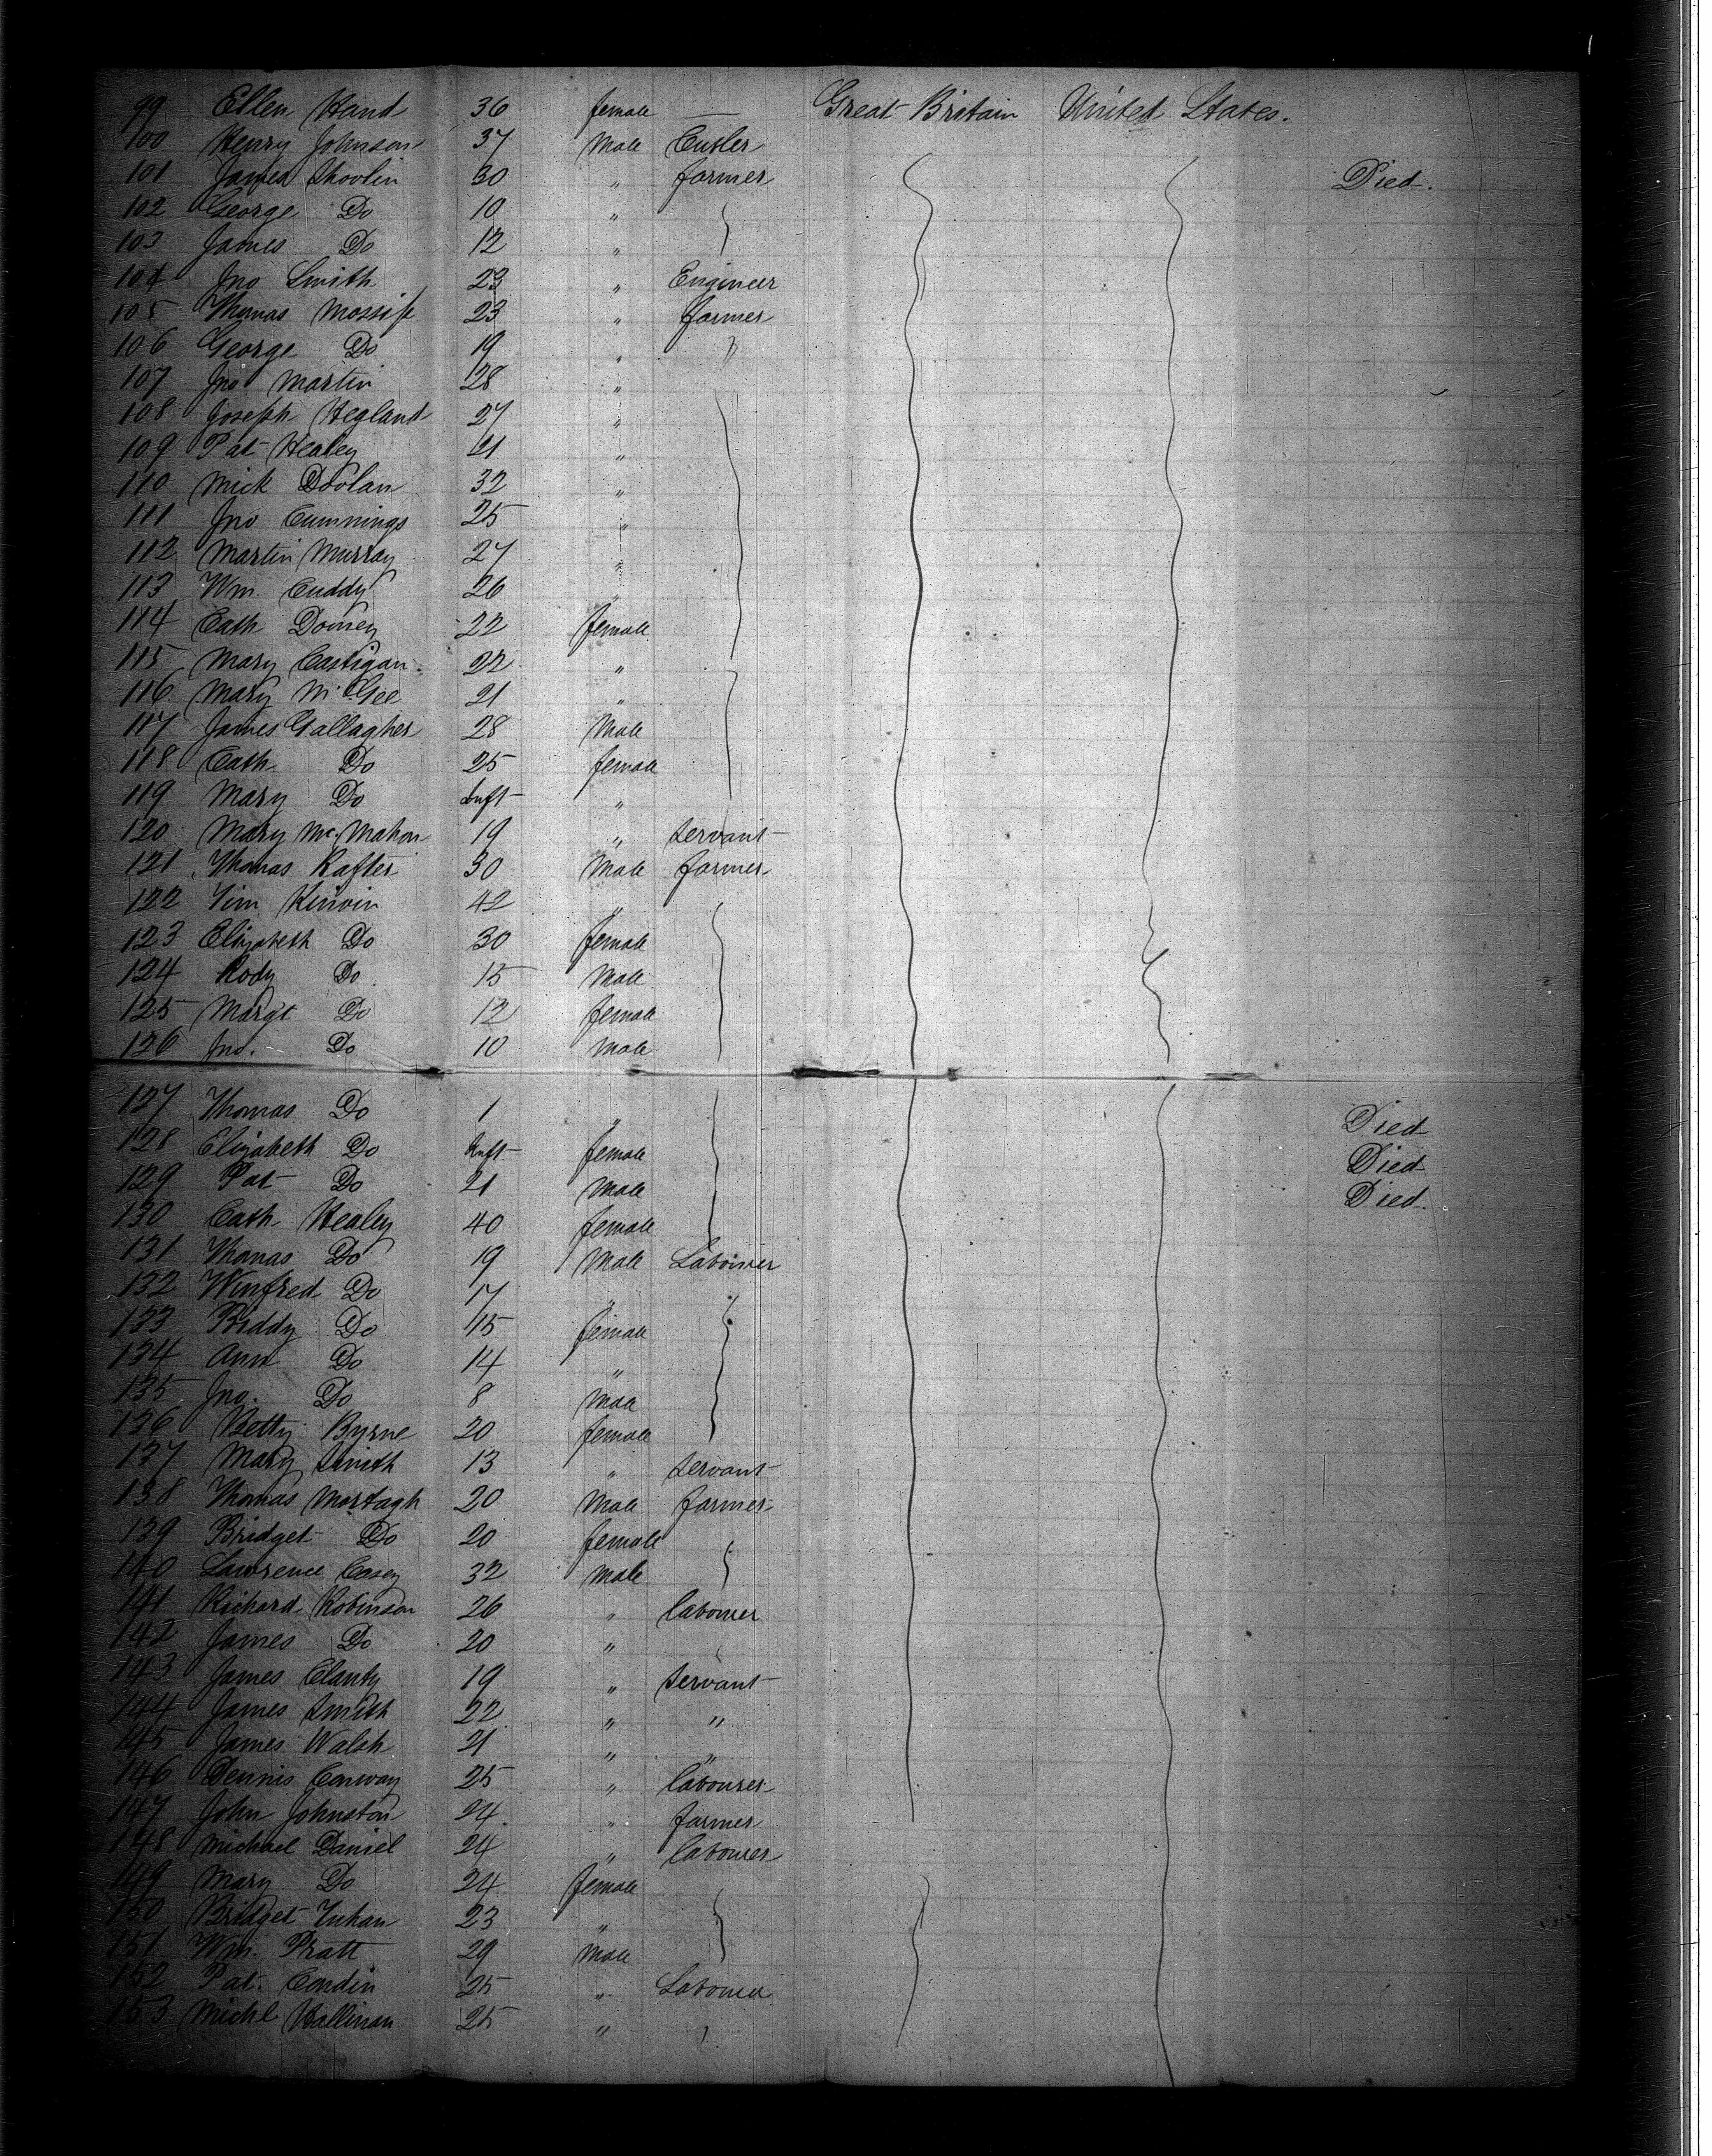 99 Ellen Hand 36 female — Great Britain United States.
100 Henry Johnson 37 Male Cutler
101 James Shovlin 30 " farmer Died.
102 George Do 10 "
103 James Do 12 "
104 Jno Smith 23 " Engineer
105 Thomas Mossip 23 " farmer
106 George Do 19 " "
107 Jno Martin 28 "
108 Joseph Hegland 27 "
109 Pat Healey 21 "
110 Mick Doolan 32 "
111 Jno Cummings 25 "
112 Martin Murray 27 "
113 Wm. Cuddy 26 "
114 Cath Downey 22 female
115 Mary Castigan 22 "
116 Mary McGee 21 "
117 James Gallagher 28 Male
118 Cath. Do 25 female
119 Mary Do Inft "
120 Mary McMahon 19 " servant
121 Thomas Rafter 30 Male farmer
122 Tim Kirvin 42 "
123 Elizabeth Do 30 female
124 Rody Do 15 Male
125 Margt Do 12 female
126 Jno. Do 10 Male
127 Thomas Do 1 " Died
128 Elizabeth Do Inft female Died
129 Pat Do 21 Male Died.
130 Cath Healey 40 female
131 Thomas Do 19 Male Labourer
132 Winfred Do 17 "
133 Biddy Do 15 female
134 Ann Do 14 "
135 Jno. Do 8 Male
136 Betty Byrne 20 female
137 Mary Smith 13 " servant
138 Thomas Mortagh 20 Male farmer
139 Bridget Do 20 female
140 Lawrence Casey 32 male
141 Richard Robinson 26 " labourer
142 James Do 20 "
143 James Clanty 19 " servant
144 James Smith 22 " "
145 James Walsh 21 " "
146 Dennis Conway 25 " labourer
147 John Johnston 24 " farmer
148 Michael Daniel 24 " labourer
149 Mary Do 24 female
150 Bridget 23 "
151 Wm. Pratt 29 Male
152 Pat. Condin 25 " Labourer
153 Michl Hallinan 25 " "